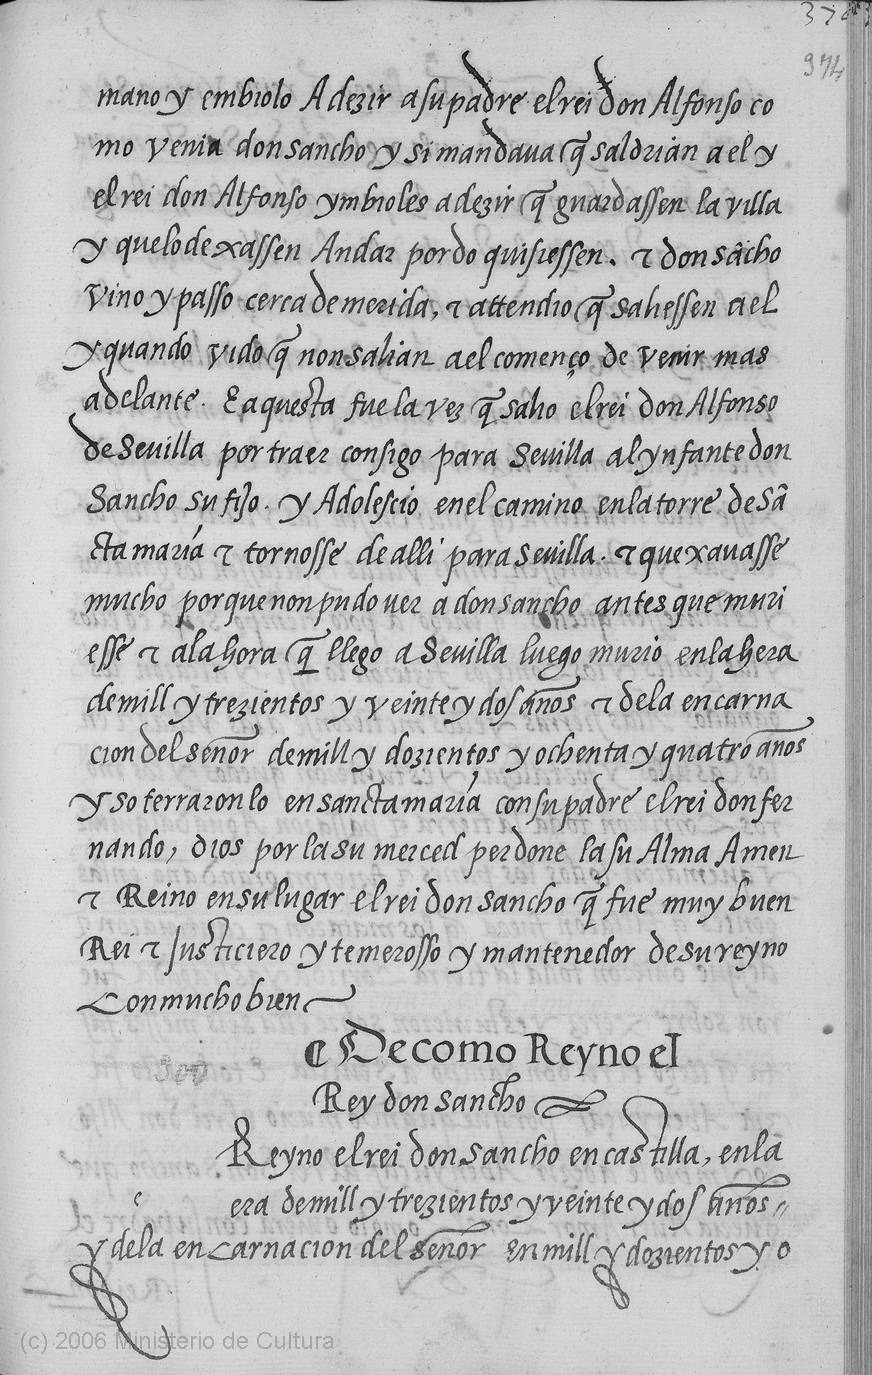 374
974
mano y embiolo A dezir a su padre el rei don Alfonso co
mo venia don sancho y si mandaua q̃ saldrian a el y
el rei don Alfonso ymbioles a dezir q̃ guardassen la villa
y que lo dexassen Andar por do quisiessen. τ don sãcho
vino y passo cerca de merida, τ attendio q̃ saliessen a el
y quando vido q̃ non salian a el començo de venir mas
adelante. E aquesta fue la vez q̃ salio el rei don Alfonso
de Seuilla por traer consigo para Seuilla al ynfante don
Sancho su fijo. y Adolescio en el camino en la torre de Sã
cta maria τ tornosse de alli para Seuilla. τ quexauasse
mucho porque non pudo ver a don sancho antes que muri
esse τ a la hora q̃ llego a Seuilla luego murio en la hera
de mill y trezientos y veinte y dos años τ de la encarna
cion del señor de mill y dozientos y ochenta y quatro años
y soterraron lo en sancta maria con su padre el rei don fer
nando, Dios por la su merced perdone la su Alma Amen
τ Reino en su lugar el rei don sancho q̃ fue muy buen
Rei τ justiciero y temerosso y mantenedor de su reyno
Con mucho bien
¶ De como Reyno el
300
Rey don sancho
Reyno el rei don sancho en castilla, en la
era de mill y trezientos y veinte y dos años,,
y de la encarnacion del señor En mill y dozientos y o
(c) 2006 Ministerio de Cultura